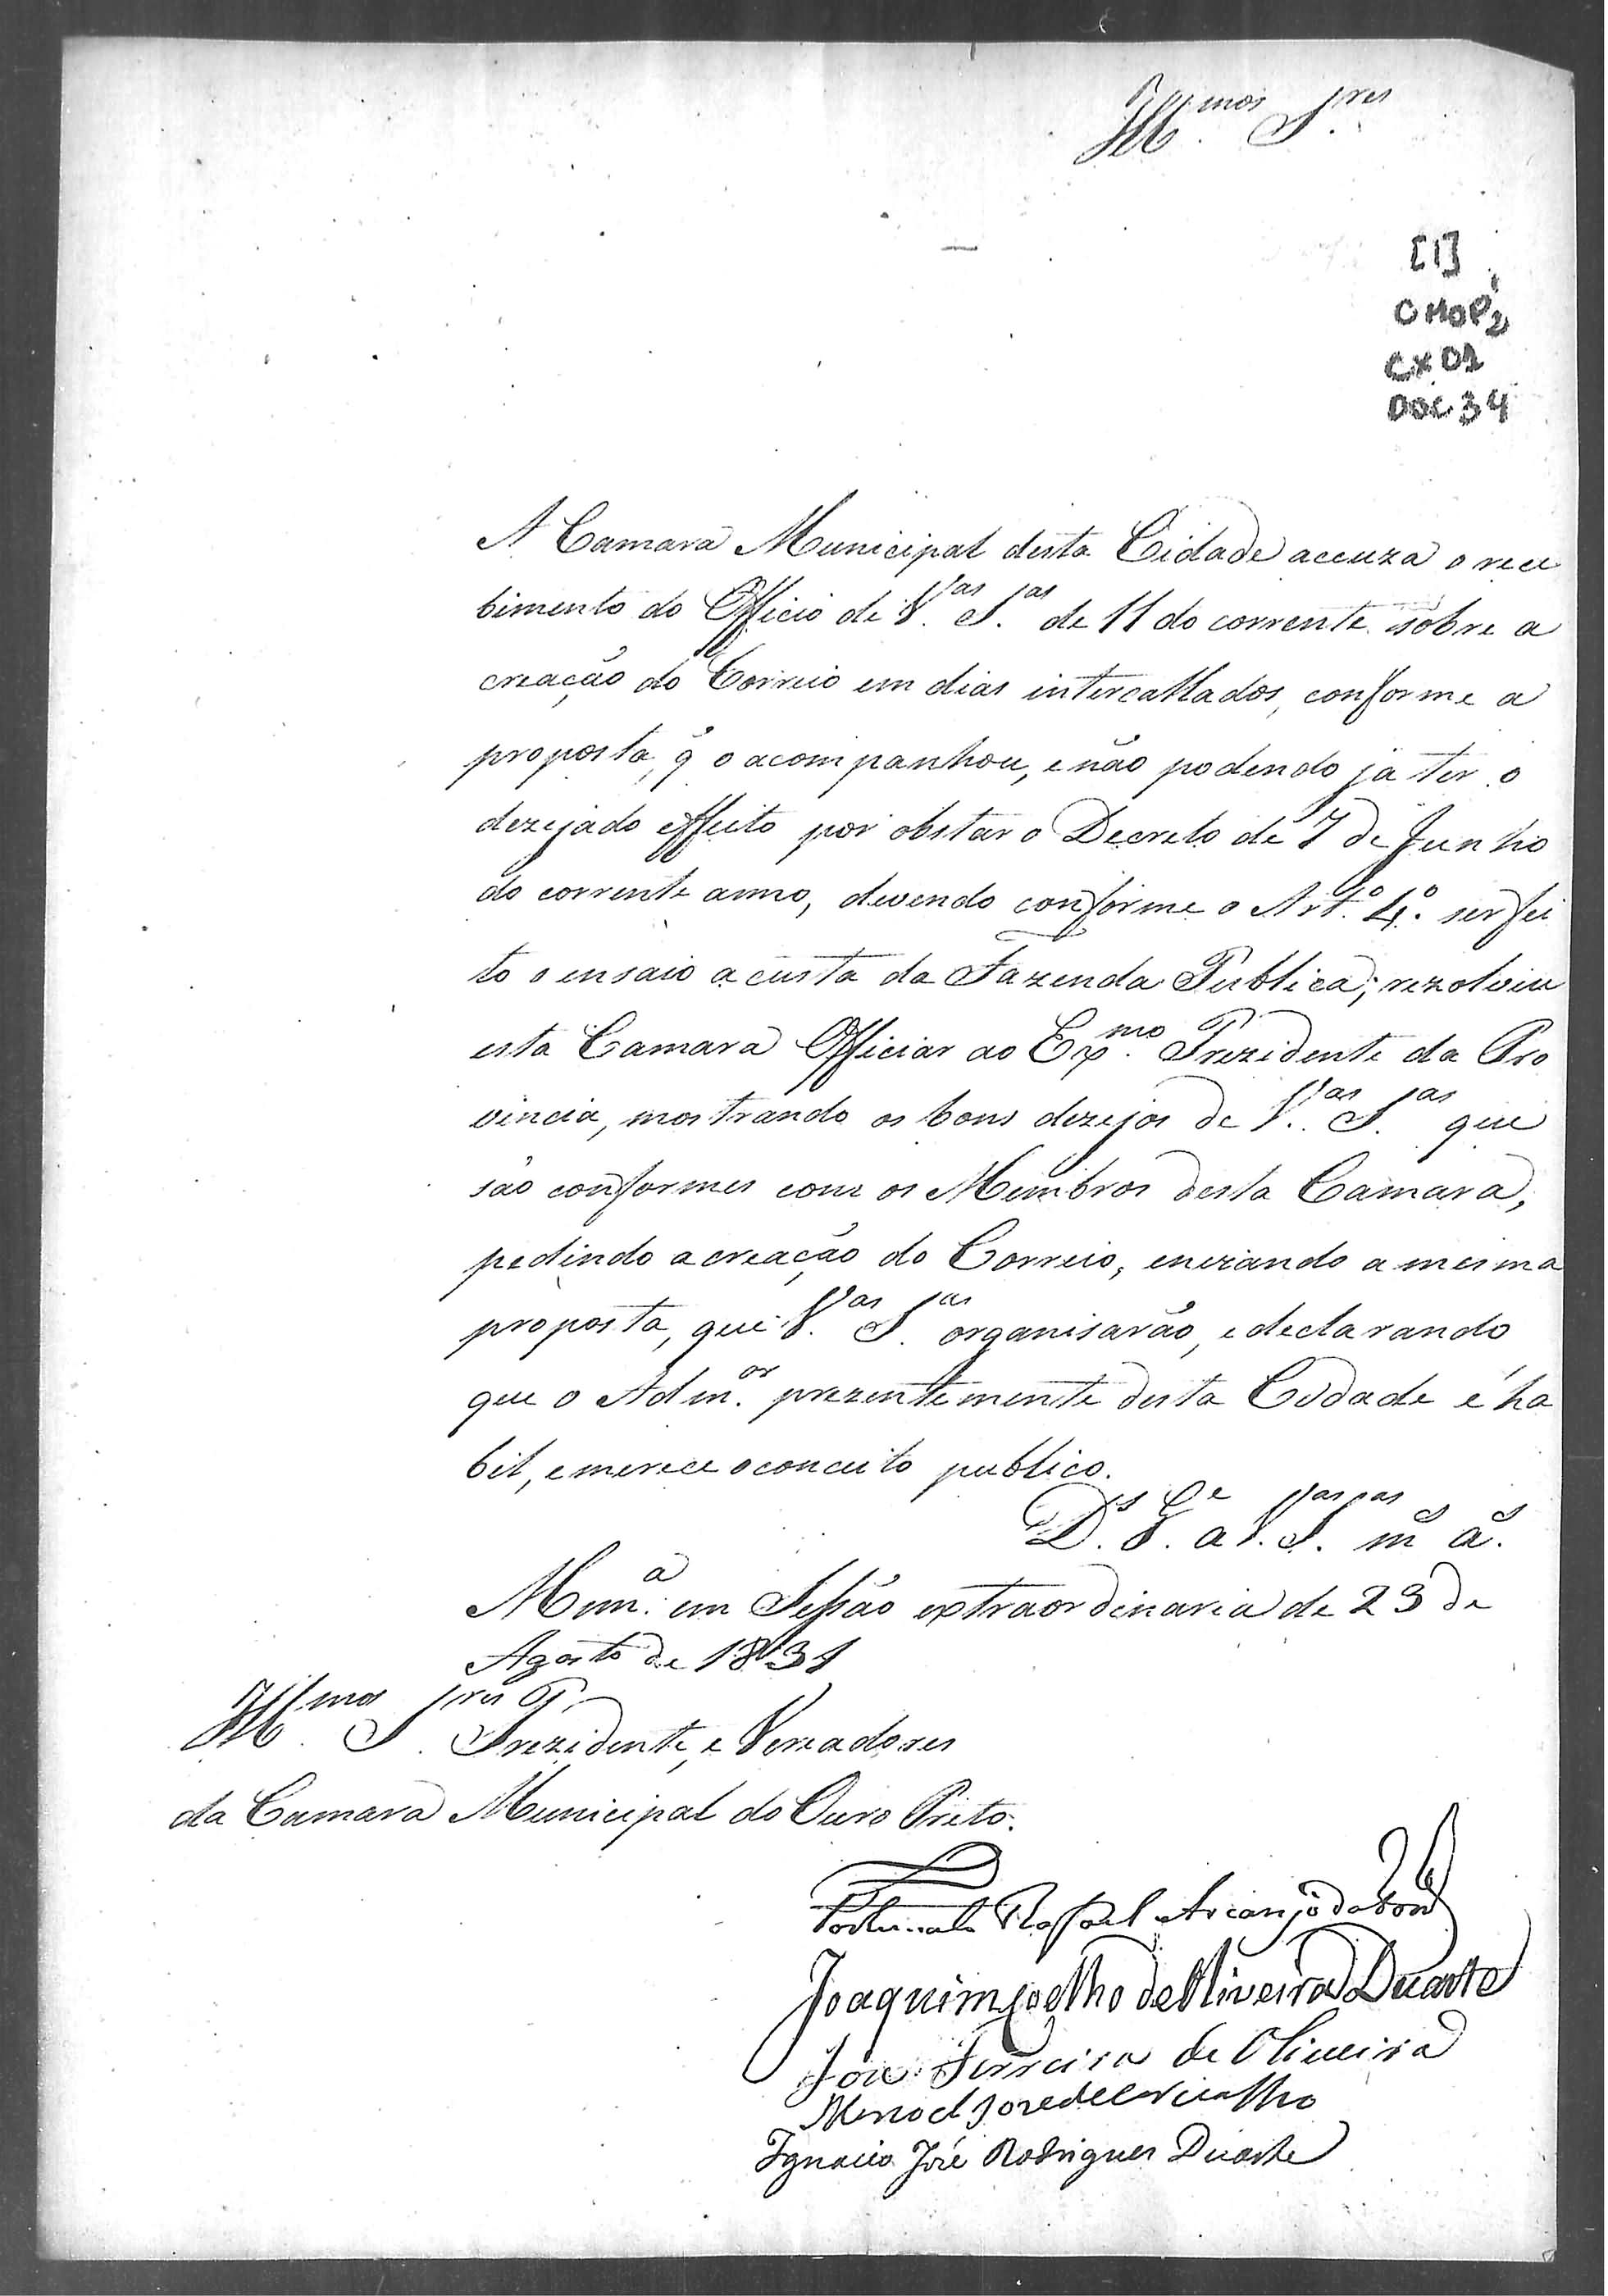 Ill.mos S.res
[1]
CMOP2
CX 01
DOC 34
A Camara Municipal desta Cidade accuza o rece
bimento do Officio de V.as S.as de 11 do corrente sobre a
creação do Correio em dias intercallados, conforme a
proposta, q̃ o acompanhou, e não podendo ja ter o
dezejado effeito por obstar o Decreto de 7 de Junho
do corrente anno, devendo conforme o Art.o 4.o ser fei
to o ensaio a custa da Fazenda Publica; rezolveu
esta Camara Officiar ao Ex.mo Prezidente da Pro
vincia, mostrando os bons dezejos de V.as S.as que
são conformes com os Membros desta Camara,
pedindo a creação do Correio, enviando a mesma
proposta, que V.as S.as organisarão, e declarando
que o Adm.or prezentemente desta Cidade é ha
bil, e merece o conceito publico.
D.s G.e a V.as S.as m.s a.s
Mar.a em Sessão extraordinaria de 23 de
Agosto de 1831
Ill.mos S.res Prezidente, e Vereadores
da Camara Municipal do Ouro Preto.
Fortunato Rafael Arcanjo da
Joaquim Coelho de Oliveira Duarte
José Ferreira de Oliveira
Manoel Jose de Carvalho
Ignacio José Rodrigues Duarte